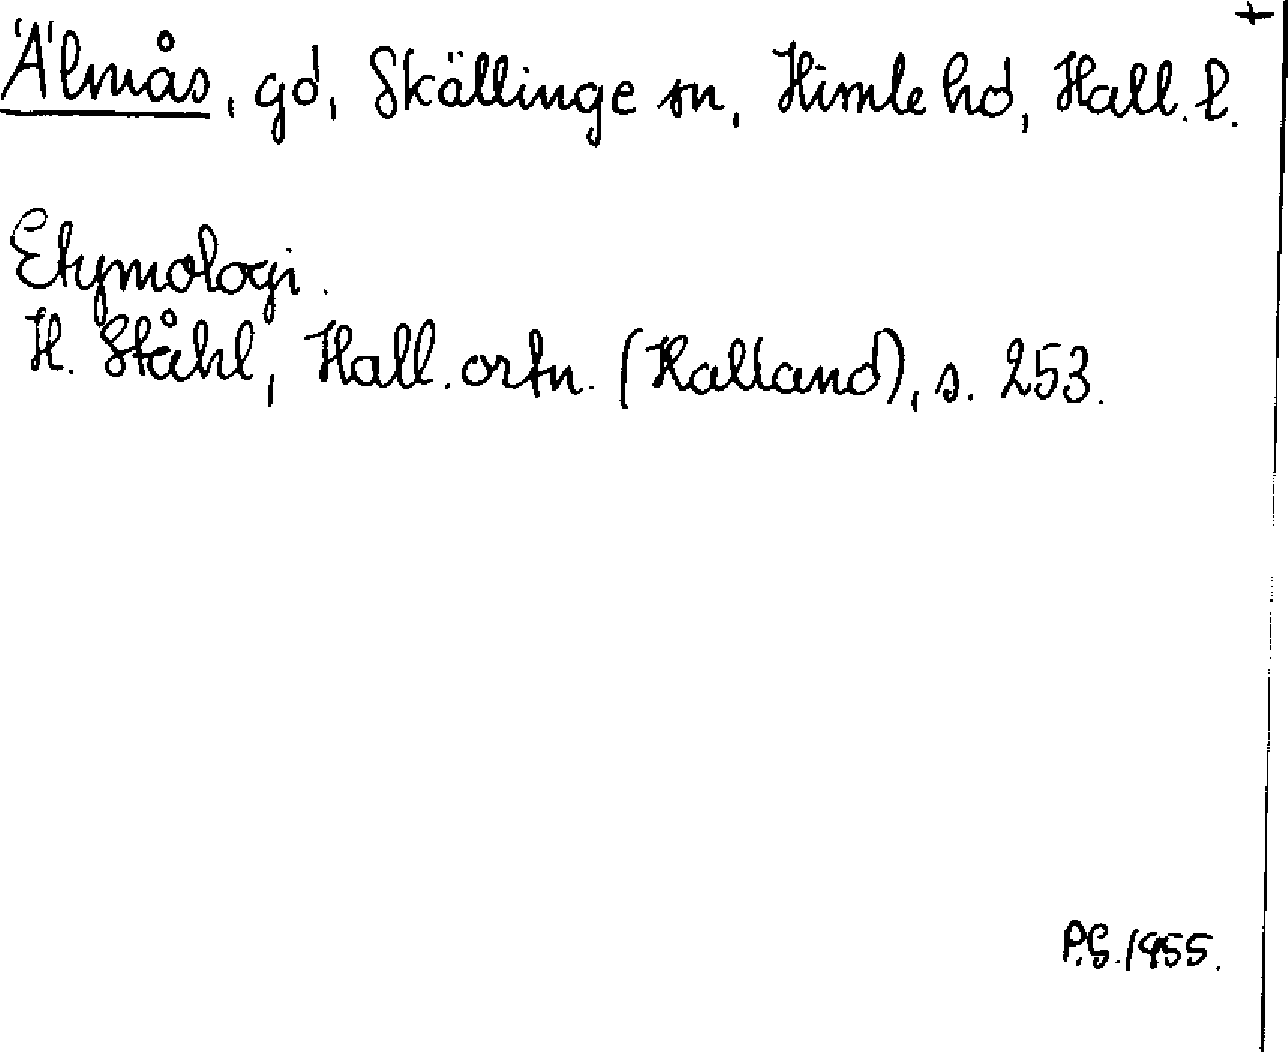 +
Älmås, gd, Skällinge sn, Himle hd, Hall. l.
Etymologi.
H. Ståhl, Hall. ortn. (Halland), s. 253.
P.G. 1955.